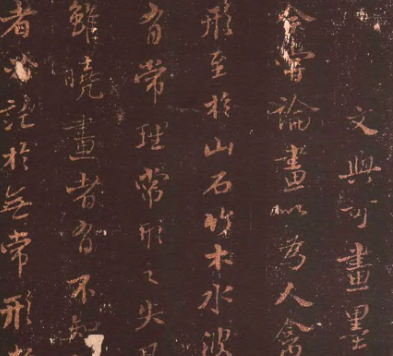 文與可畫墨
余嘗論畫以為人禽
形至於山石竹木水波
有常理常形之失
雖曉畫者有不知
者必託於無常形者